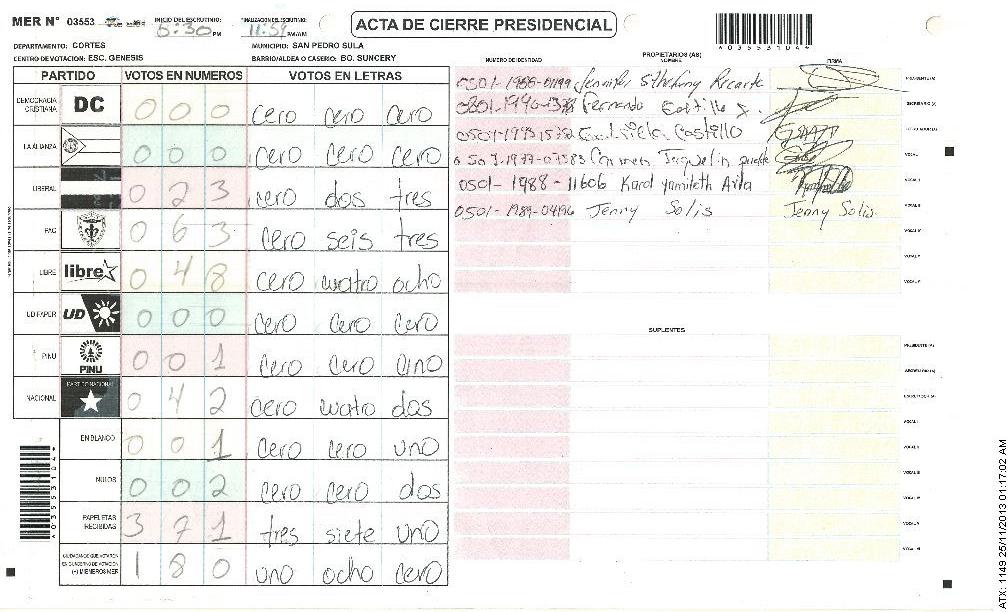 MER N° 03553 INICIO DEL ESCRUTINIO: 5:30 PM FINALIZACION DEL ESCRUTINIO: 11:59 PM/AM
ACTA DE CIERRE PRESIDENCIAL
A03553104
DEPARTAMENTO: CORTES MUNICIPIO: SAN PEDRO SULA
CENTRO DE VOTACION: ESC. GENESIS BARRIO/ALDEA O CASERIO: BO. SUNCERY
PARTIDO VOTOS EN NUMEROS VOTOS EN LETRAS
DEMOCRACIA CRISTIANA DC 0 0 0 cero cero cero
LA ALIANZA 0 0 0 cero cero cero
LIBERAL 0 2 3 cero dos tres
PAC 0 6 3 cero seis tres
LIBRE libre 0 4 8 cero cuatro ocho
UD FAPER UD 0 0 0 cero cero cero
PINU PINU 0 0 1 cero cero uno
NACIONAL PARTIDO NACIONAL 0 4 2 cero cuatro dos
EN BLANCO 0 0 1 cero cero uno
NULOS 0 0 2 cero cero dos
PAPELETAS RECIBIDAS 3 7 1 tres siete uno
CIUDADANOS QUE VOTARON EN CUADERNO DE VOTACION (+) MIEMBROS MER 1 8 0 uno ocho cero
A03553104
NUMERO DE IDENTIDAD PROPIETARIOS (AS) NOMBRE FIRMA
0501-1988-01199 Jennifer Recarte PRESIDENTE (A)
Fernando Castillo SECRETARIO (A)
Gabriela Castillo ESCRUTADOR (A)
Carmen Jaquelin VOCAL I
0501-1988-11606 Karol Yamileth Avila VOCAL II
0501-1989-04196 Jenny Solis Jenny Solis. VOCAL III
VOCAL IV
VOCAL V
VOCAL VI
SUPLENTES
PRESIDENTE (A)
SECRETARIO (A)
ESCRUTADOR (A)
VOCAL I
VOCAL II
VOCAL III
VOCAL IV
VOCAL V
VOCAL VI
ATX: 1149 25/11/2013 01:17:02 AM